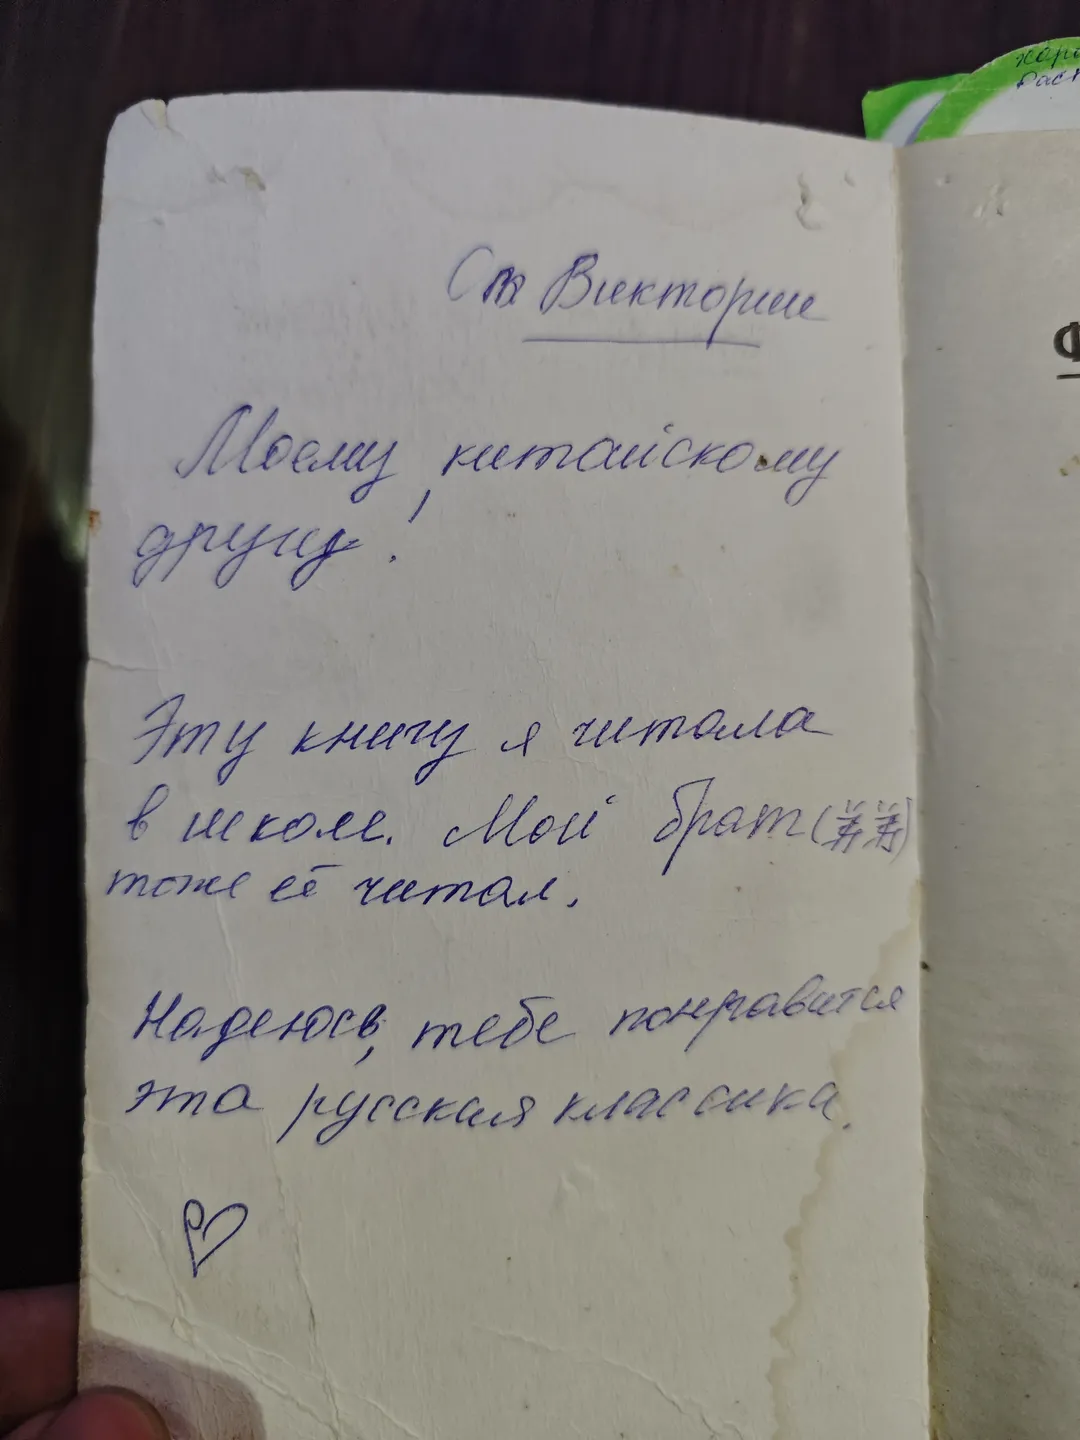 Виктории
Моему китайскому
другу!
Эту книгу я читала
в школе. Мой брат
тоже её читал.
Надеюсь, тебе понравится
эта русская классика.
Ф